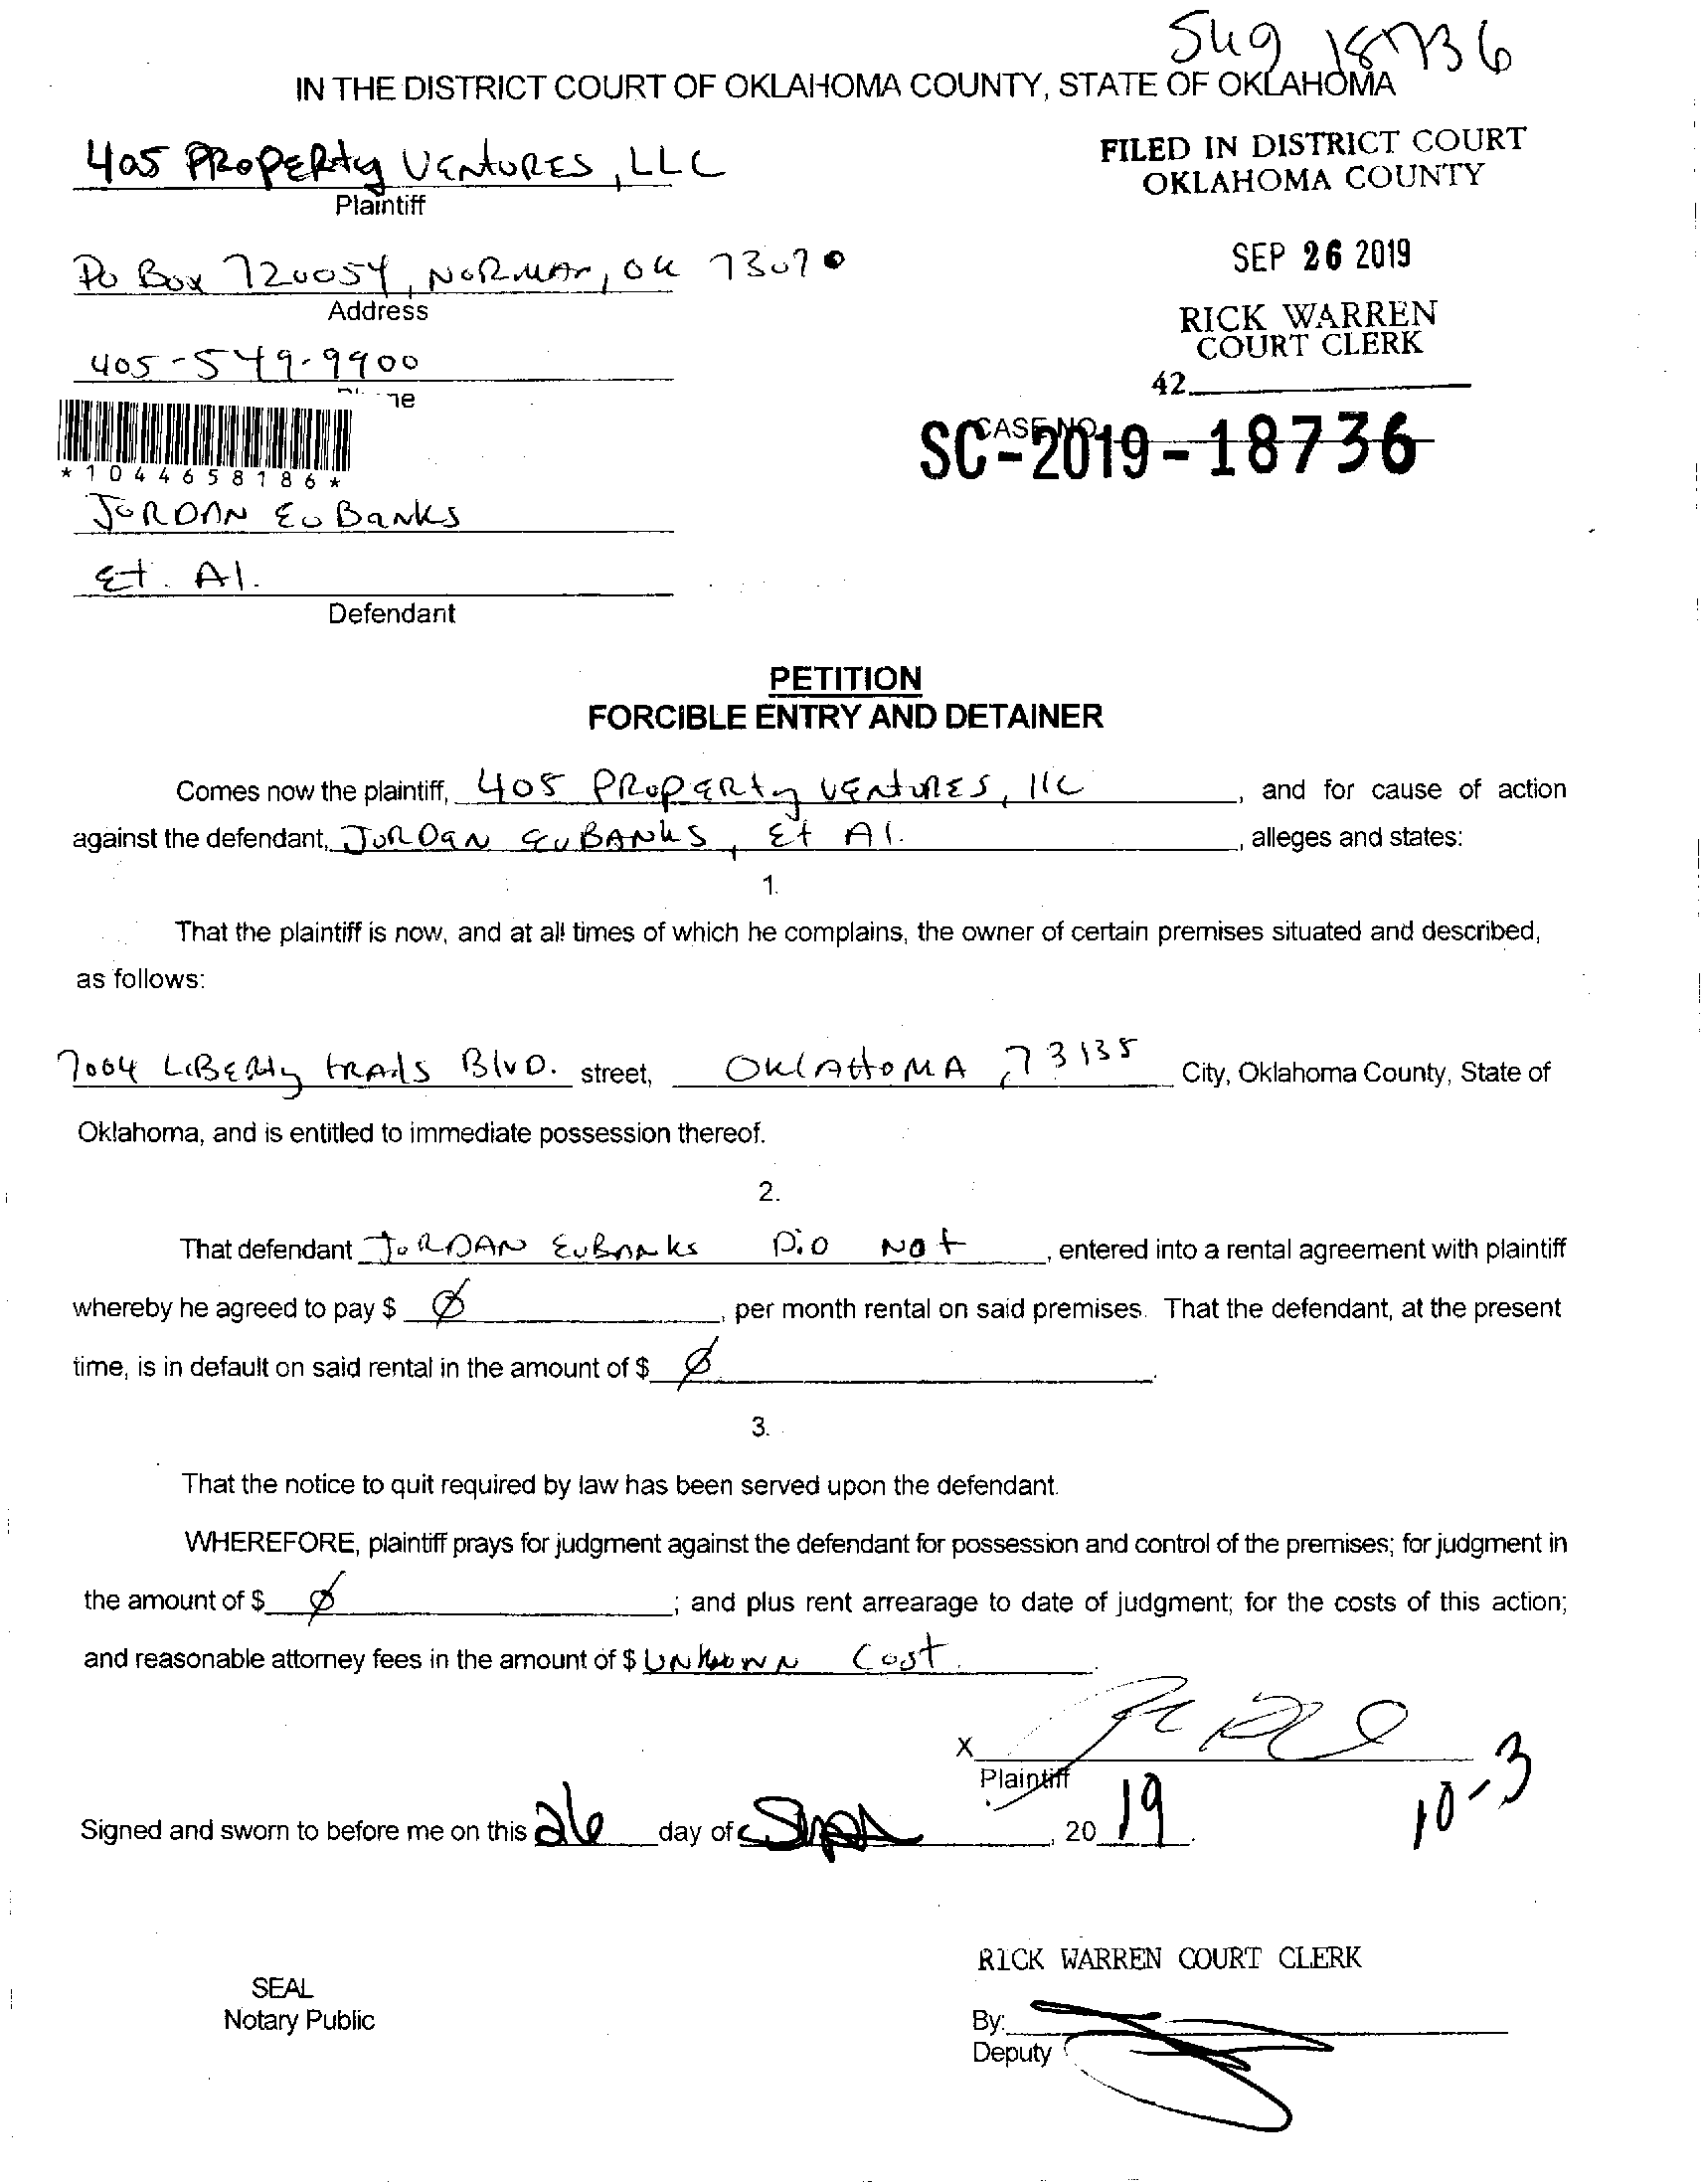 18736
IN THE DISTRICT COURT OF OKLAHOMA COUNTY, STATE OF OKLAHOMA
405 PROPERty VENtURES, LLC
Plaintiff
FILED IN DISTRICT COURT
OKLAHOMA COUNTY
Po Box 720054, NORMAN, OK 73070
Address
SEP 26 2019
RICK WARREN
COURT CLERK
405-549-9900
42
CASE NO.
SC-2019-18736
*1044658186*
JORDAN EuBanks
Et. Al.
Defendant
PETITION
FORCIBLE ENTRY AND DETAINER
Comes now the plaintiff, 405 PROPERty VENtURES, llC, and for cause of action
against the defendant, JORDaN EuBANKS, Et Al., alleges and states:
1.
That the plaintiff is now, and at all times of which he complains, the owner of certain premises situated and described,
as follows:
7004 LiBERty tRAils BlvD. street, OKlAHoMA, 73135 City, Oklahoma County, State of
Oklahoma, and is entitled to immediate possession thereof.
2.
That defendant JoRDAN EuBANks DiD Not, entered into a rental agreement with plaintiff
whereby he agreed to pay $ Ø, per month rental on said premises. That the defendant, at the present
time, is in default on said rental in the amount of $ Ø.
3.
That the notice to quit required by law has been served upon the defendant.
WHEREFORE, plaintiff prays for judgment against the defendant for possession and control of the premises; for judgment in
the amount of $ Ø; and plus rent arrearage to date of judgment; for the costs of this action;
and reasonable attorney fees in the amount of $ UNKNOWN Cost.
X
Plaintiff
10-3
Signed and sworn to before me on this 26 day of, 20 19.
RICK WARREN COURT CLERK
SEAL
Notary Public
By:
Deputy